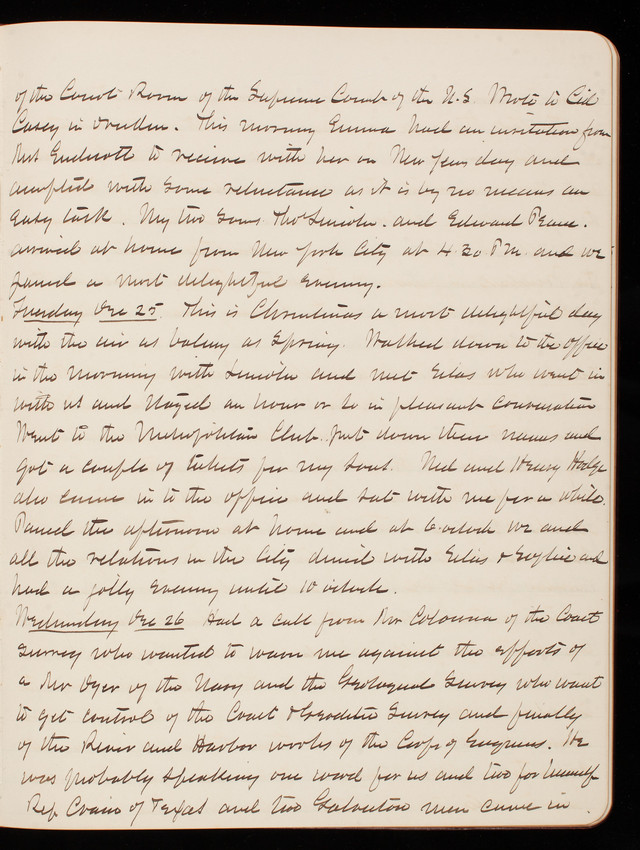 of the Court Room of the Supreme Court of the U.S. Wrote to Cid
Casey in Dresden. This morning Emma had an invitation from
Mrs Endicott to receive with her on New Years day and
accepted with some reluctance as it is by no means an
easy task. My two sons Thos Lincoln. and Edward Pearce.
arrived at home from New York City at 4.30 P.M. and we
passed a most delightful evening.
Tuesday Dec 25. This is Christmas a most delightful day
with the air as balmy as Spring. Walked down to the office
in the morning with Lincoln and met Silas who went in
with us and stayed an hour or so in pleasant conversation
Went to the Metropolitan Club. put down their names and
got a couple of tickets for my sons. Ned and Henry Hodge
also came in to the office and sat with me for a while.
Passed the afternoon at home and at 6 oclock we and
all the relations in the City dined with Silas & Sophie and
had a jolly evening until 10 oclock.
Wednesday Dec 26 Had a call from Mr Colonna of the Coast
Survey who wanted to warn me against the efforts of
a Mr Dyer of the Navy and the Geological Survey who want
to get control of the Coast & Geodetic Survey and finally
of the River and Harbor works of the Corps of Engineers. He
was probably speaking one word for us and two for himself
Rep Crain of Texas and two Galveston men came in